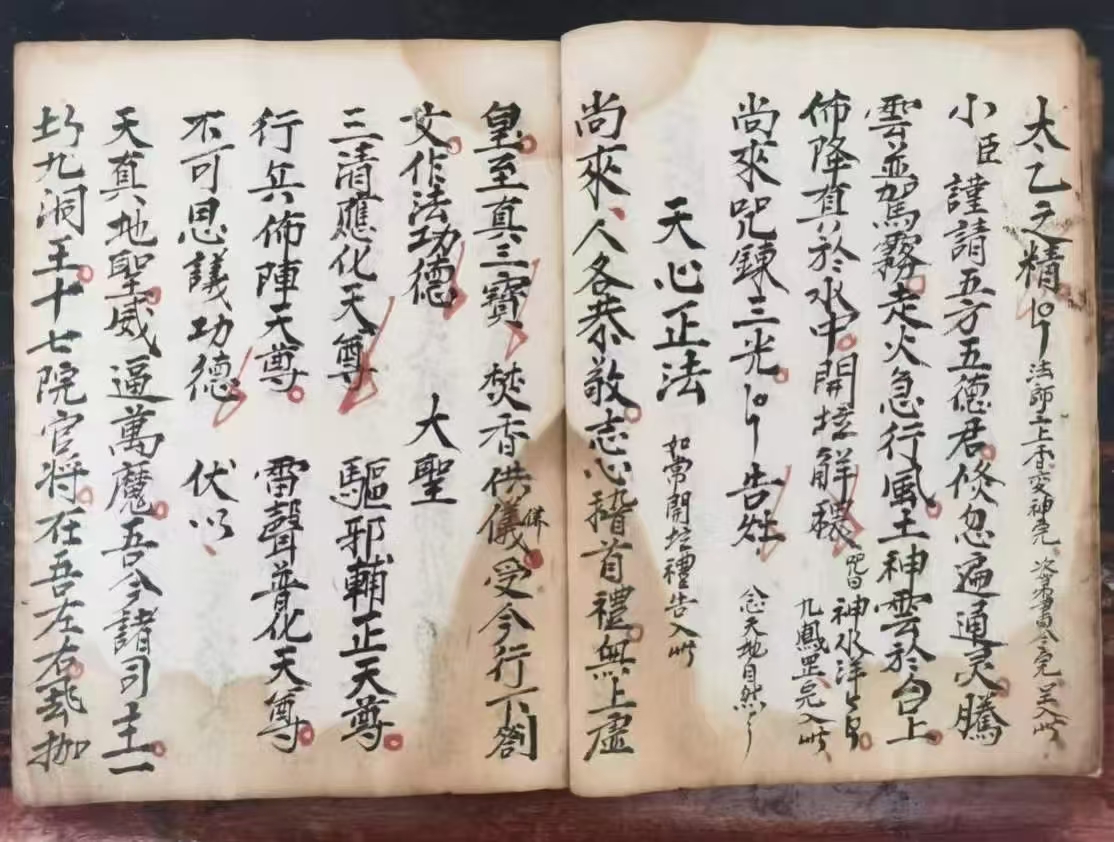 太乙之精 法師上香 神完 次第
小臣謹請五方五德君倏忽遍通灵騰
雲並駕霧走火急行風土神雲於白上
佈降真於水中開坛解穢 咒曰 神水洋 九鳳罡完入此
尚來咒鍊三光 告 念天地自然
天心正法 如常開坛禮告入此
尚來人各恭敬志心稽首禮無上虛
皇至真三寶焚香供儀 受今行下劄
文作法功德 大聖
三清應化天尊 驅邪輔正天尊
行兵佈陣天尊 雷聲普化天尊
不可思議功德 伏以
天真地聖威逼萬魔吾今諸司主一
九洞王十七院官将在吾左右